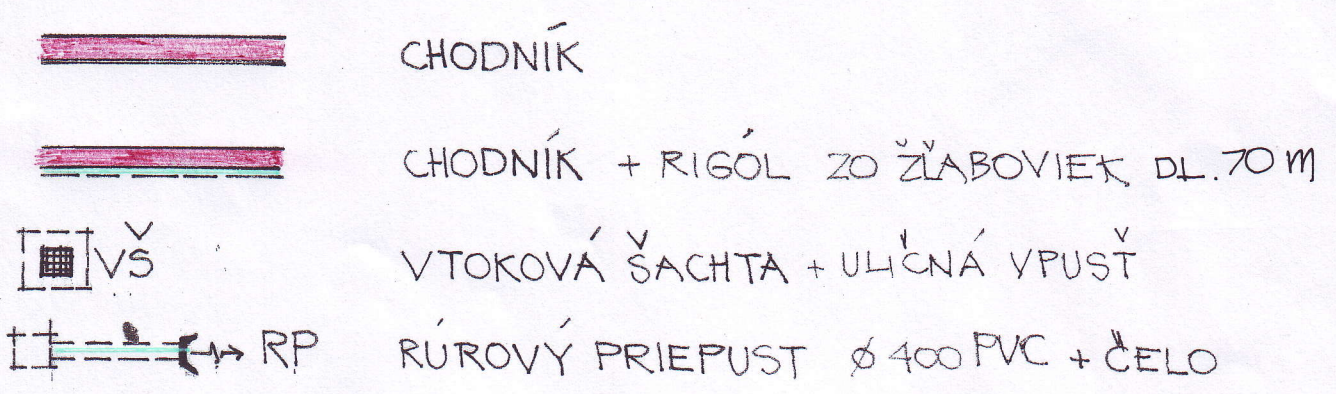 CHODNÍK
CHODNÍK + RIGÓL ZO ŽĽABOVIEK DL. 70 m
VŠ VTOKOVÁ ŠACHTA + ULIČNÁ VPUSŤ
RP RÚROVÝ PRIEPUST Ø 400 PVC + ČELO